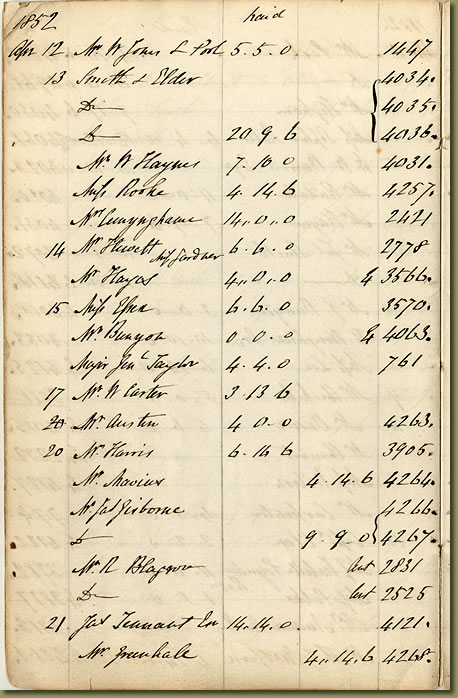 1852 paid
Apr 12 Mr W Jones L Pool 5. 5. 0 1447
13 Smith & Elder 4034.
Do 4035.
Do 20 9. 6 4036.
Mr W Haynes 7. 10 0 4031.
Miss Rooke 4. 14. 6 4257.
Mrs Cunynghame 14. 0. 0 2421
14 Mrs Hewett Miss Gardner 6. 6. 0 2778
Mr Hayes 4. 0. 0 & 3566.
15 Miss 6. 6. 0 3570.
Mr Bunyon 0. 0. 0 & 4063.
Major Jenl Taylor 4. 4. 0 761
17 Mr W Carter 3. 13 6
20 Mr Austin 4 0. 0 4263.
20 Mr Harris 6. 16 6 3905.
Mr Mavius 4. 14. 6 4264.
Mr Jas Gisborne 4266.
Do 9. 9. 0 4267.
Mr R Blagrove 2831
Do 2525
21 Jas Tennant Esq 14. 14. 0 4121.
Mr Greenhale 4. 14. 6 4268.